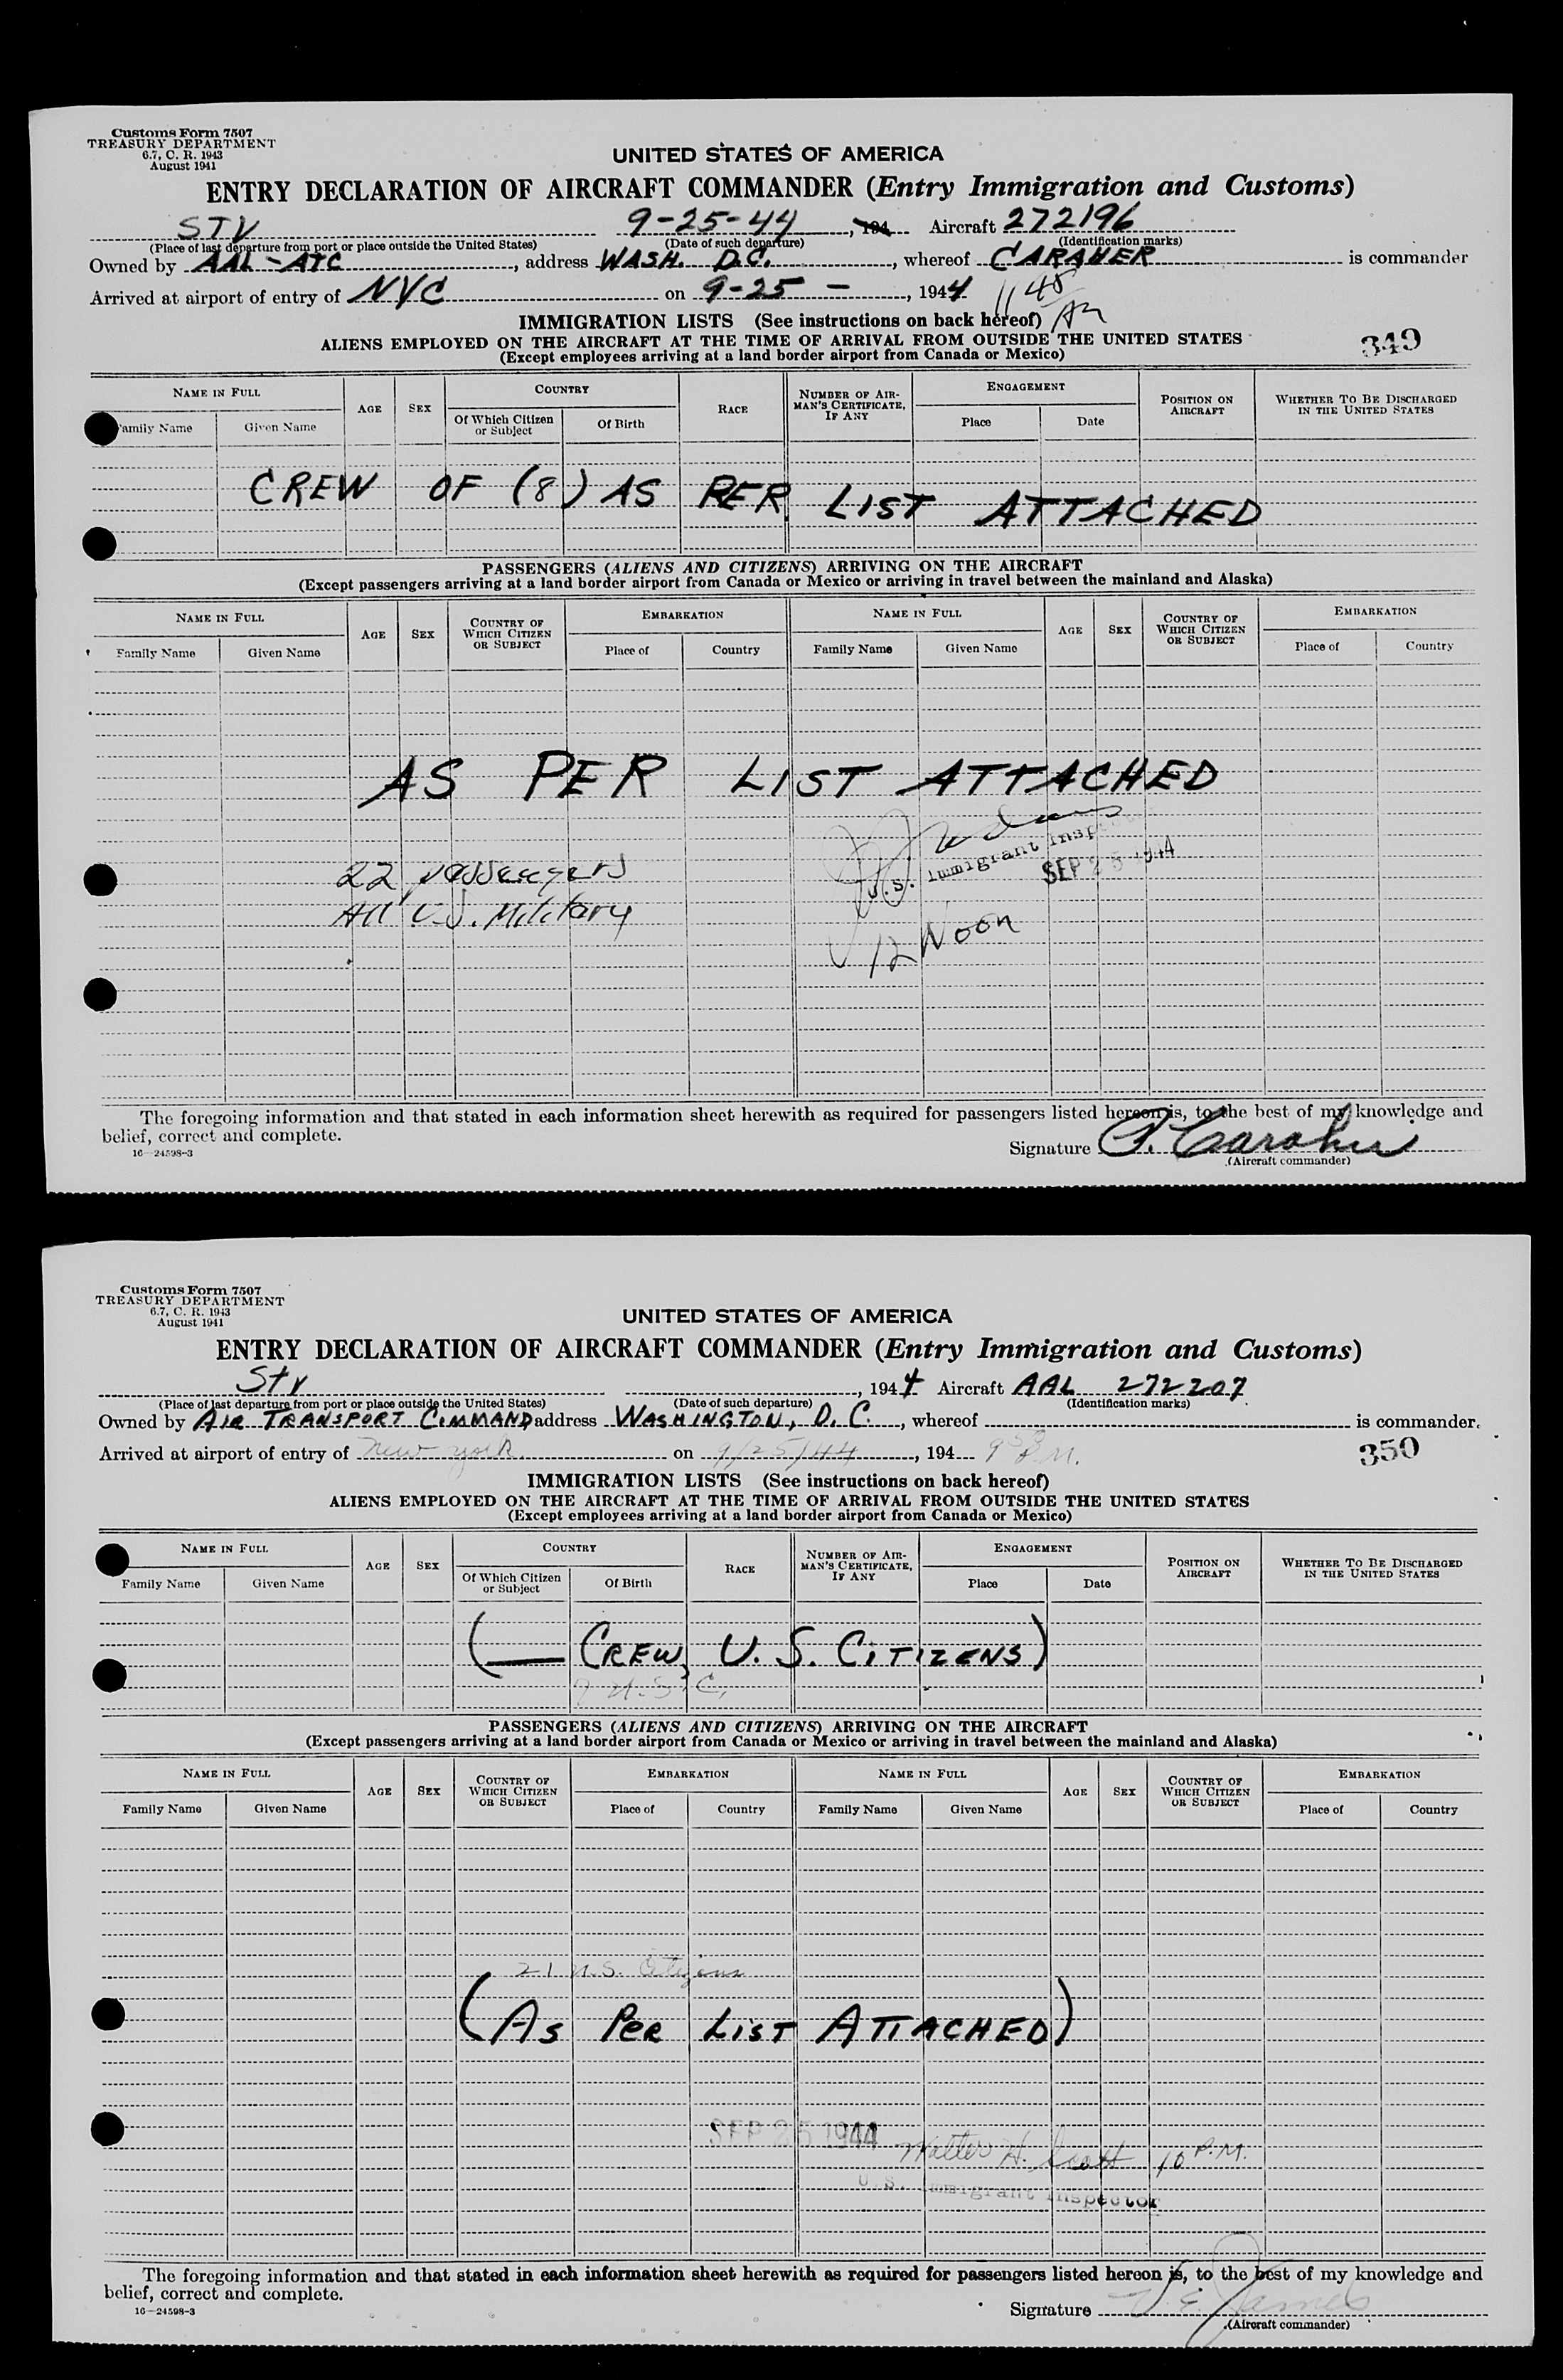 Customs Form 7507
TREASURY DEPARTMENT
6.7, C. R. 1943
August 1941
UNITED STATES OF AMERICA
ENTRY DECLARATION OF AIRCRAFT COMMANDER (Entry Immigration and Customs)
STV 9-25-44, 194 Aircraft 272196
(Place of last departure from port or place outside the United States) (Date of such departure) (Identification marks)
Owned by AAL-ATC, address WASH. D.C., whereof CARAHER is commander
Arrived at airport of entry of NYC on 9-25-, 1944 11 45 AM
IMMIGRATION LISTS (See instructions on back hereof)
ALIENS EMPLOYED ON THE AIRCRAFT AT THE TIME OF ARRIVAL FROM OUTSIDE THE UNITED STATES
(Except employees arriving at a land border airport from Canada or Mexico)
349
NAME IN FULL AGE SEX COUNTRY RACE NUMBER OF AIRMAN'S CERTIFICATE, IF ANY ENGAGEMENT POSITION ON AIRCRAFT WHETHER TO BE DISCHARGED IN THE UNITED STATES
Family Name Given Name Of Which Citizen or Subject Of Birth Place Date
CREW OF (8) AS PER LIST ATTACHED
PASSENGERS (ALIENS AND CITIZENS) ARRIVING ON THE AIRCRAFT
(Except passengers arriving at a land border airport from Canada or Mexico or arriving in travel between the mainland and Alaska)
NAME IN FULL AGE SEX COUNTRY OF WHICH CITIZEN OR SUBJECT EMBARKATION NAME IN FULL AGE SEX COUNTRY OF WHICH CITIZEN OR SUBJECT EMBARKATION
Family Name Given Name Place of Country Family Name Given Name Place of Country
AS PER LIST ATTACHED
U.S. Immigrant Insp
22 passengers SEP 25 1944
All U.S. Military
12 Noon
The foregoing information and that stated in each information sheet herewith as required for passengers listed hereon is, to the best of my knowledge and
belief, correct and complete.
Signature P. Caraher
16—24598-3 (Aircraft commander)
Customs Form 7507
TREASURY DEPARTMENT
6.7, C. R. 1943
August 1941
UNITED STATES OF AMERICA
ENTRY DECLARATION OF AIRCRAFT COMMANDER (Entry Immigration and Customs)
Stv , 1944 Aircraft AAL 272207
(Place of last departure from port or place outside the United States) (Date of such departure) (Identification marks)
Owned by AIR TRANSPORT COMMAND, address WASHINGTON, D. C., whereof is commander.
Arrived at airport of entry of New York on 9/25/44, 194 9 50 P.M.
350
IMMIGRATION LISTS (See instructions on back hereof)
ALIENS EMPLOYED ON THE AIRCRAFT AT THE TIME OF ARRIVAL FROM OUTSIDE THE UNITED STATES
(Except employees arriving at a land border airport from Canada or Mexico)
NAME IN FULL AGE SEX COUNTRY RACE NUMBER OF AIRMAN'S CERTIFICATE, IF ANY ENGAGEMENT POSITION ON AIRCRAFT WHETHER TO BE DISCHARGED IN THE UNITED STATES
Family Name Given Name Of Which Citizen or Subject Of Birth Place Date
( — CREW, U. S. CITIZENS)
9 U.S.C.
PASSENGERS (ALIENS AND CITIZENS) ARRIVING ON THE AIRCRAFT
(Except passengers arriving at a land border airport from Canada or Mexico or arriving in travel between the mainland and Alaska)
NAME IN FULL AGE SEX COUNTRY OF WHICH CITIZEN OR SUBJECT EMBARKATION NAME IN FULL AGE SEX COUNTRY OF WHICH CITIZEN OR SUBJECT EMBARKATION
Family Name Given Name Place of Country Family Name Given Name Place of Country
21 U.S. Citizens
(AS PER LIST ATTACHED)
SEP 25 1944 Walter H. Scott 10 P.M.
U.S. Immigrant Inspector
The foregoing information and that stated in each information sheet herewith as required for passengers listed hereon is, to the best of my knowledge and
belief, correct and complete.
Signature E. James
16—24598-3 (Aircraft commander)